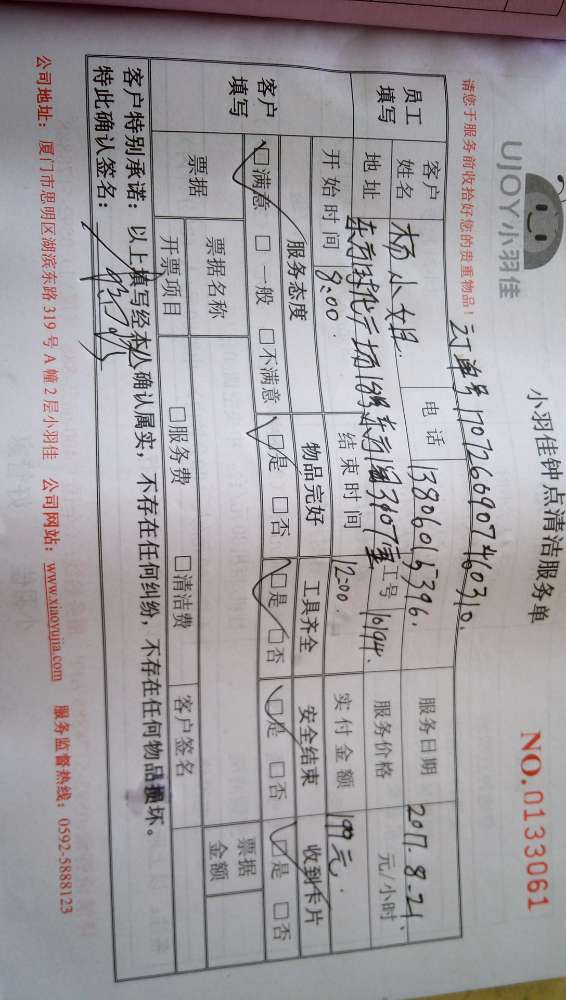 UJOY小羽佳
小羽佳钟点清洁服务单
NO.0133061
请您于服务前收拾好您的贵重物品!
订单号
员工填写
客户姓名 杨小姐 电话 13806015396. 服务日期 2017.8.21.
地址 东方 3107 工号 10194. 服务价格 元/小时
开始时间 9:00. 结束时间 12:00. 实付金额 199元.
客户填写
服务态度 物品完好 工具齐全 安全结束 收到卡片
□满意 □一般 □不满意 □是 □否 □是 □否 □是 □否 □是 □否
票据 票据名称 票据金额
开票项目 □服务费 □清洁费 客户签名
客户特别承诺:以上填写经本人确认属实,不存在任何纠纷,不存在任何物品损坏。
特此确认签名:
公司地址:厦门市思明区湖滨东路319号A幢2层小羽佳 公司网站:www.xiaoyujia.com 服务监督热线:0592-5888123